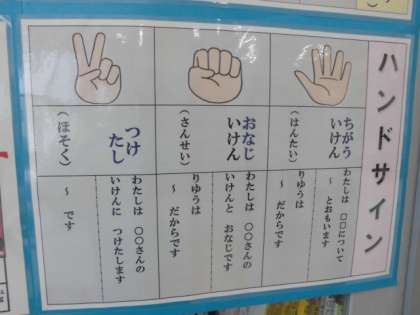 ハンドサイン
ちがう
いけん
(はんたい)
わたしは □□について
～ とおもいます
りゆうは
～ だからです
おなじ
いけん
(さんせい)
わたしは 〇〇さんの
いけんと おなじです
りゆうは
～ だからです
つけ
たし
(ほそく)
わたしは 〇〇さんの
いけんに つけたします
～ です